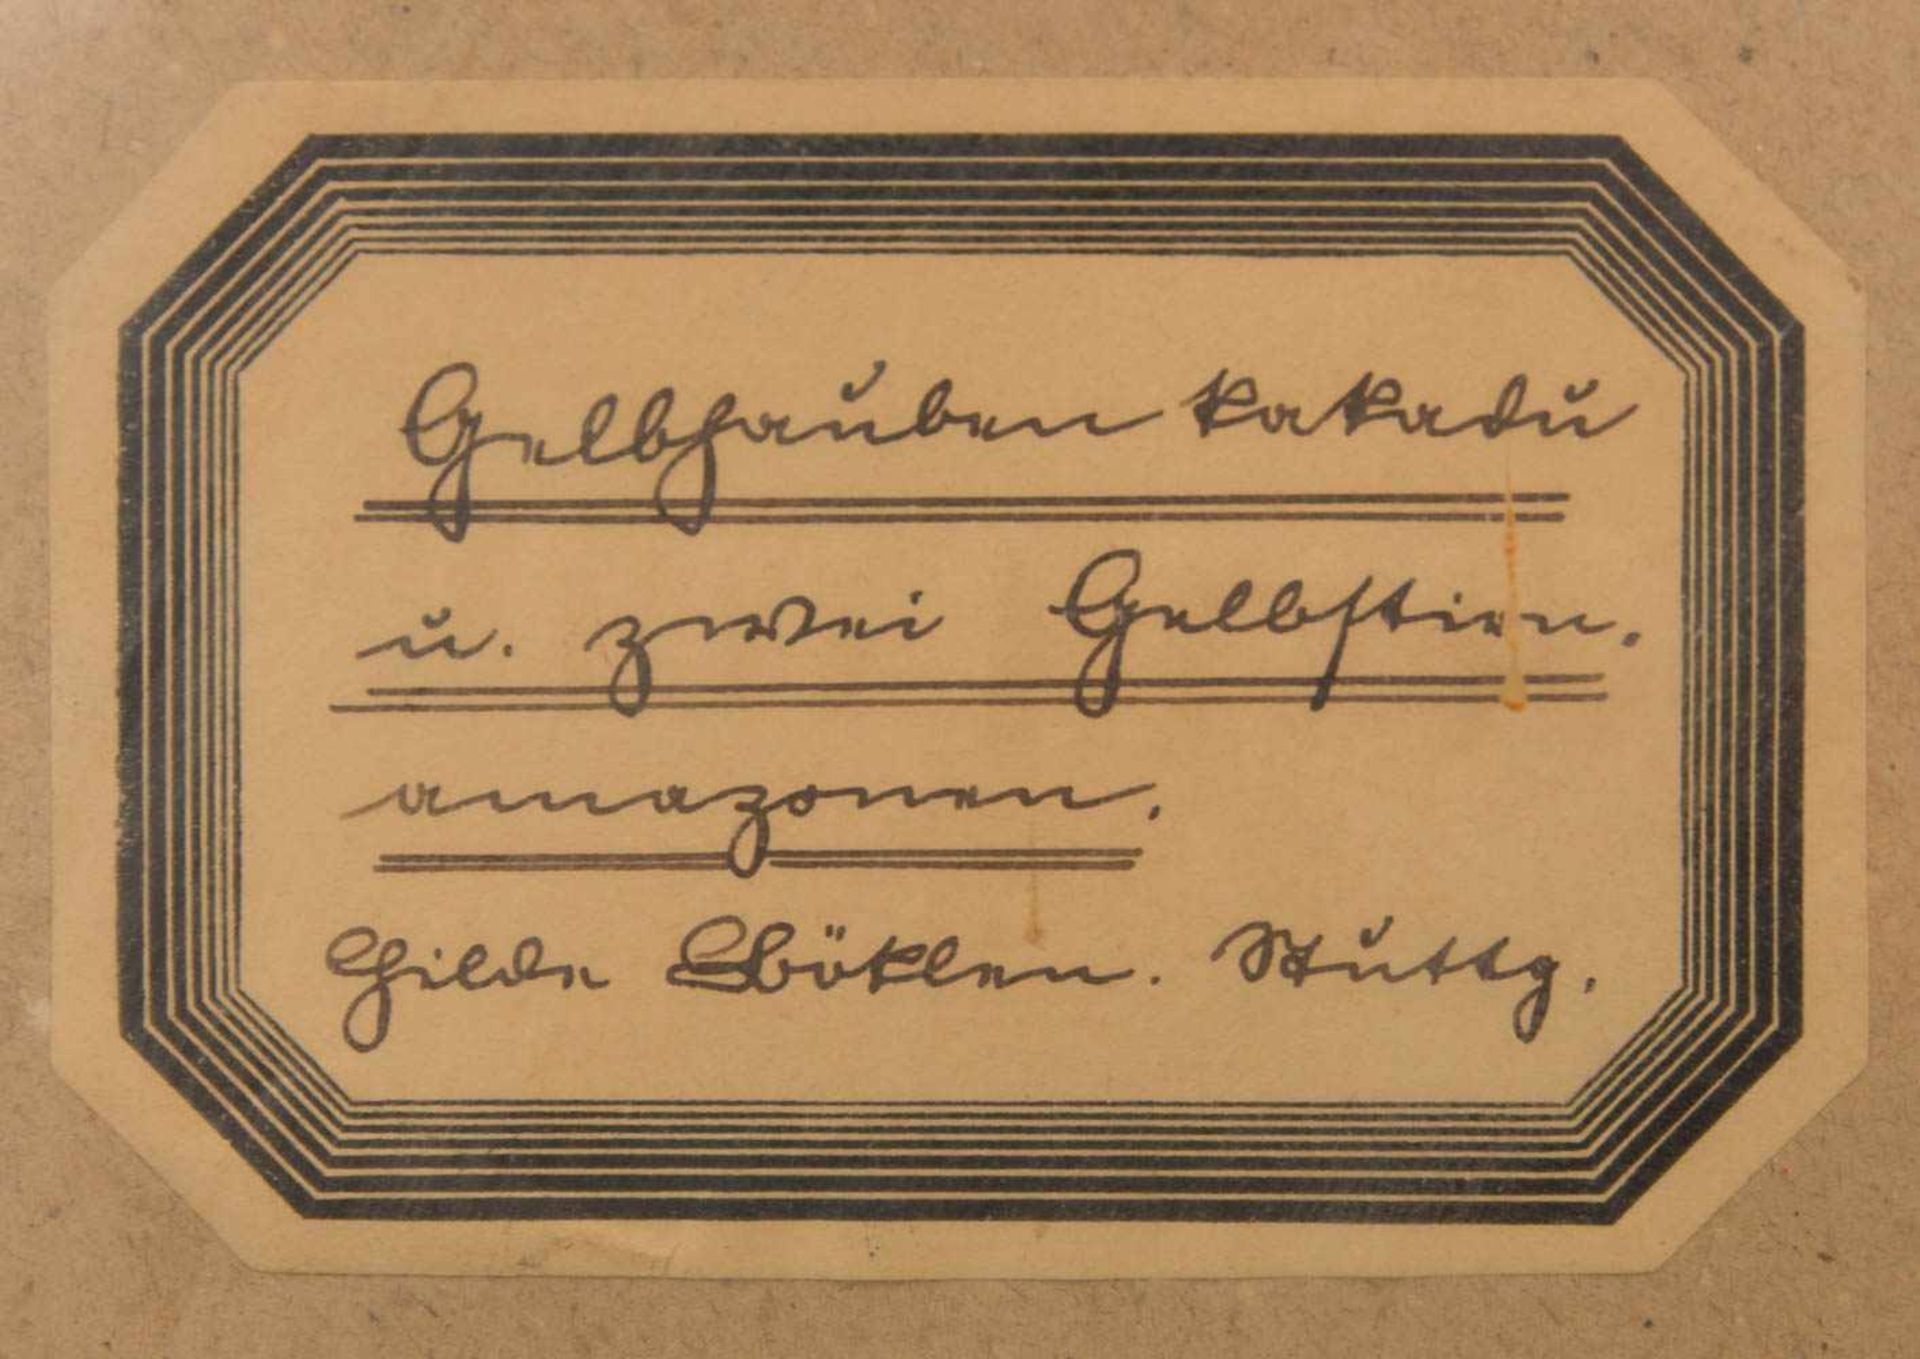 Gelbhauben kakadu
u. zwei Gelbstirn.
amazonen.
Hilde Böklen. Stuttg.